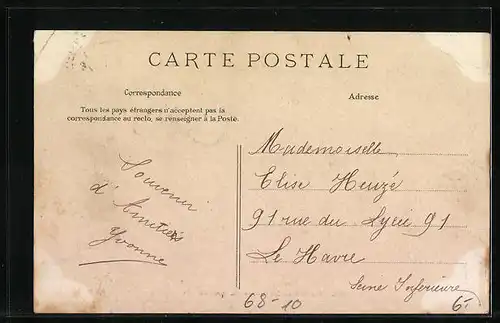 CARTE POSTALE
Correspondance
Adresse
Tous les pays étrangers n'acceptent pas la
correspondance au recto, se renseigner à la Poste.
Souvenir
d'Amitiés
Yvonne
Mademoiselle
Elise Heuzé
91 rue du Lycée 91
Le Havre
Seine Inférieure
68-10
6-